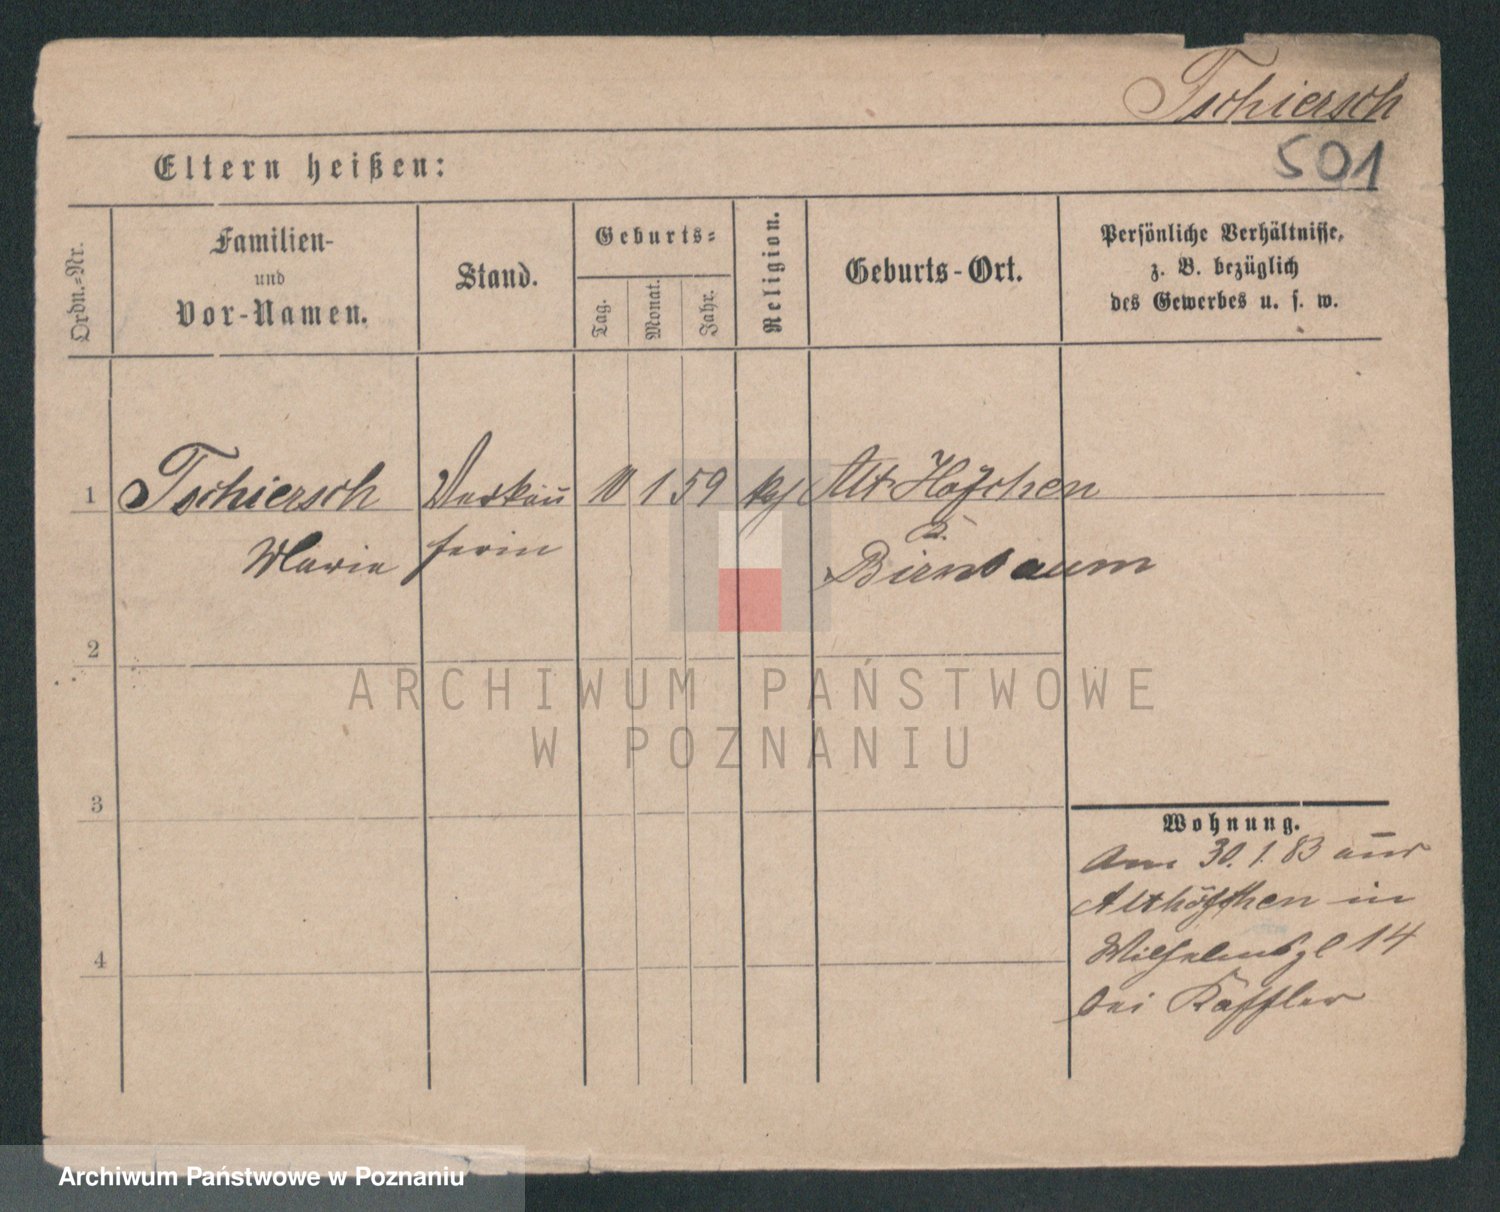 Tschiersch
501
Eltern heißen:
Ordn.-Nr.
Familien-
und
Vor-Namen.
Stand.
Geburts-
Tag.
Monat.
Jahr.
Religion.
Geburts-Ort.
Persönliche Verhältnisse,
z. B. bezüglich
des Gewerbes u. s. w.
1 Tschiersch Verkäu 10 1 59 Alt Höfchen
Marie ferin b.
Birnbaum
2
3
4
Wohnung.
Am 30.1.83 aus
Althöfchen in
Wilhelmspl 14
bei Käffler
ARCHIWUM PAŃSTWOWE
W POZNANIU
Archiwum Państwowe w Poznaniu